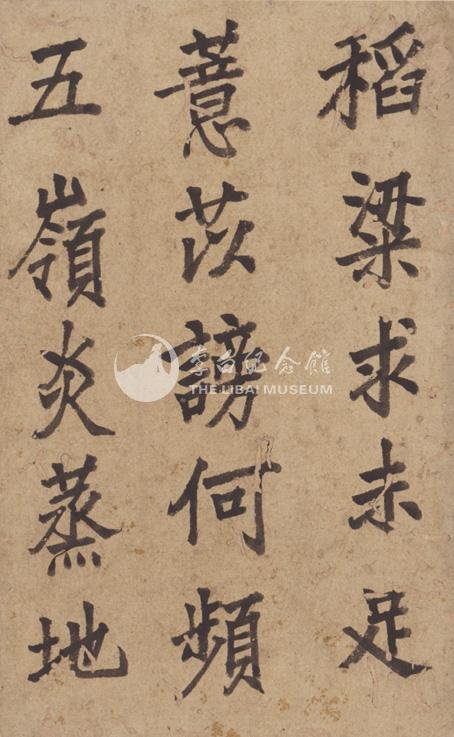 稻粱求未足
薏苡謗何頻
五嶺炎蒸地
李白紀念館
THE LIBAI MUSEUM